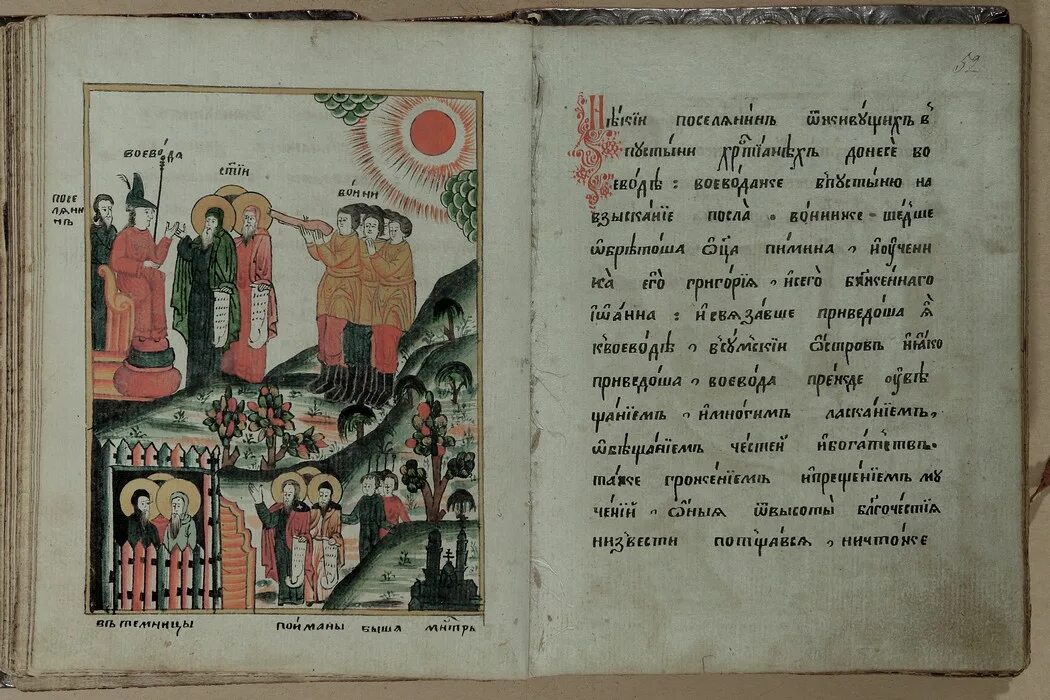 воево́да
ст҃іи
во́ини
посе
лянин
нъ
въ темницы
пои́маны быша мн҃стрь
52
Нѣ́кїи поселѧнинъ ѿживꙋщихъ в̾
пꙋстыни хрⷭ҇тїанѣхъ донесе во
еводѣ : воево́даже в̾пꙋстыню на
взысканїе посла̀ . во́иниже шедше
ѡ҆брѣто́ша ѻ҆ц҃а̀ пи́мина , и҆оу҆чени
ка̀ є҆гѡ̀ григо́рїѧ , и҆сего̀ бл҃же́ннаго
і҆ѡа́нна : и҆свѧза́вше приведо́ша ѧ҆̀
к̾воево́дѣ , в̾сꙋмскїи ѻ҆́стровъ и҆ꙗ҆́ко
приведо́ша , воево́да пре́жде оу҆вѣ
ща́нїемъ , и҆мно́гимъ ласка́нїемъ,
ѡ҆бѣща́нїемъ че́стей и҆бога́тствъ.
та́же гроже́нїемъ и҆преще́нїемъ мꙋ
че́нїй , ѻ҆́ныѧ ѿвысоты̀ бл҃гоче́стїѧ
низвестѝ потща́всѧ , ничто́же